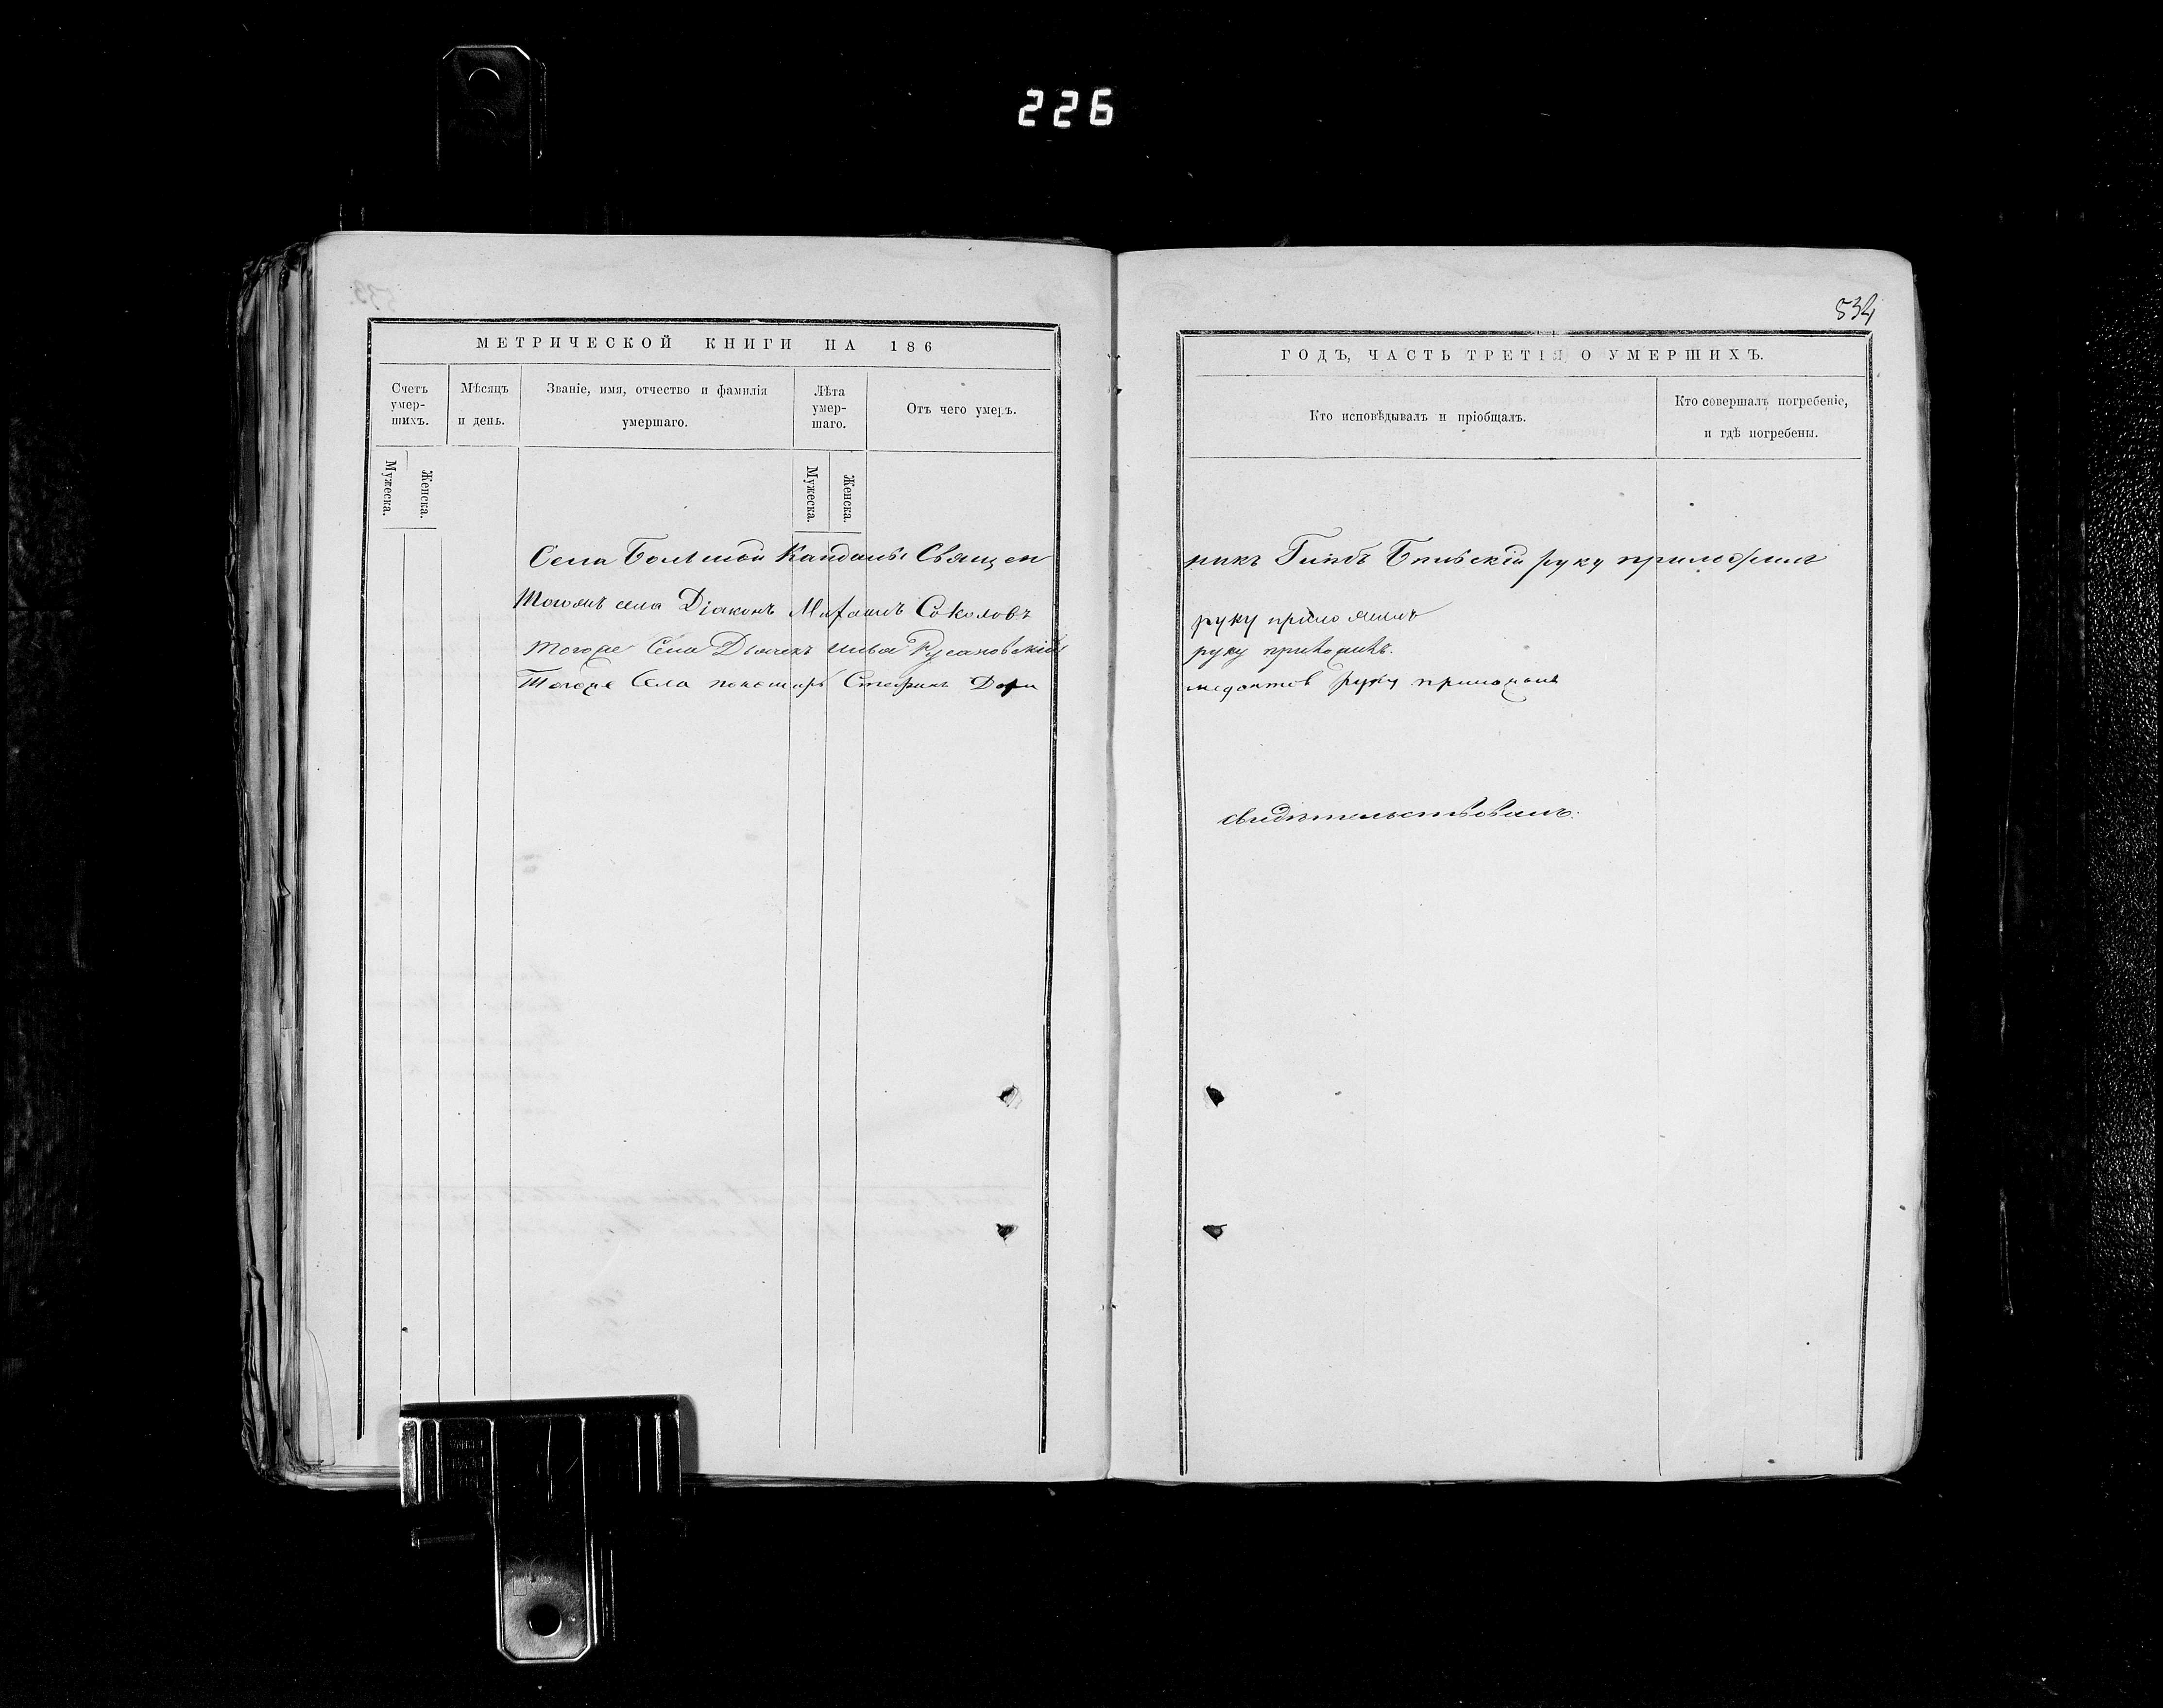 226
534
МЕТРИЧЕСКОЙ КНИГИ НА 186
Счетъ умер-шихъ.
Мѣсяцъ и день.
Званіе, имя, отчество и фамилія умершаго.
Лѣта умер-шаго.
Отъ чего умеръ.
Мужеска.
Женска.
Мужеска.
Женска.
Села Большой Кандалы Священ
Тогожъ села Діаконъ Михаилъ Соколовъ
Тогоже Села Дьячекъ Илья Русановскій
Тогоже Села пономарь Стефанъ
ГОДЪ, ЧАСТЬ ТРЕТІЯ О УМЕРШИХЪ.
Кто исповѣдывалъ и пріобщалъ.
Кто совершалъ погребеніе, и гдѣ погребены.
никъ Глѣбъ руку приложилъ
руку приложилъ
руку приложилъ.
руку приложилъ
свидѣтельствовалъ: